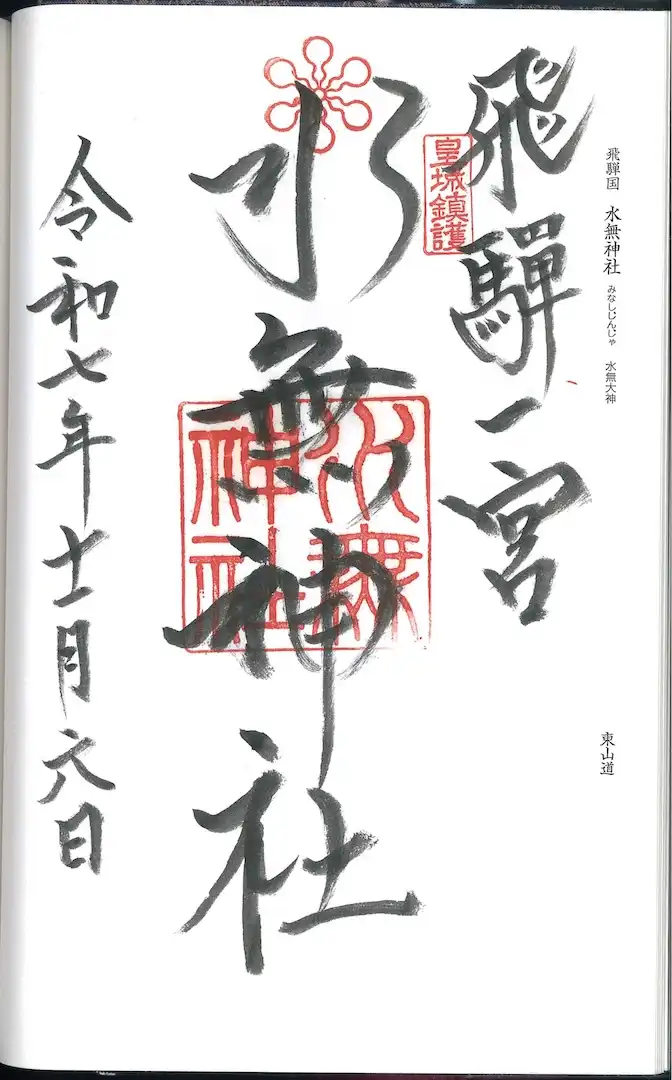 飛騨国 水無神社 みなしじんじゃ 水無大神
東山道
飛驒一宮
皇城鎮護
水無神社
水無神社
令和七年十一月六日